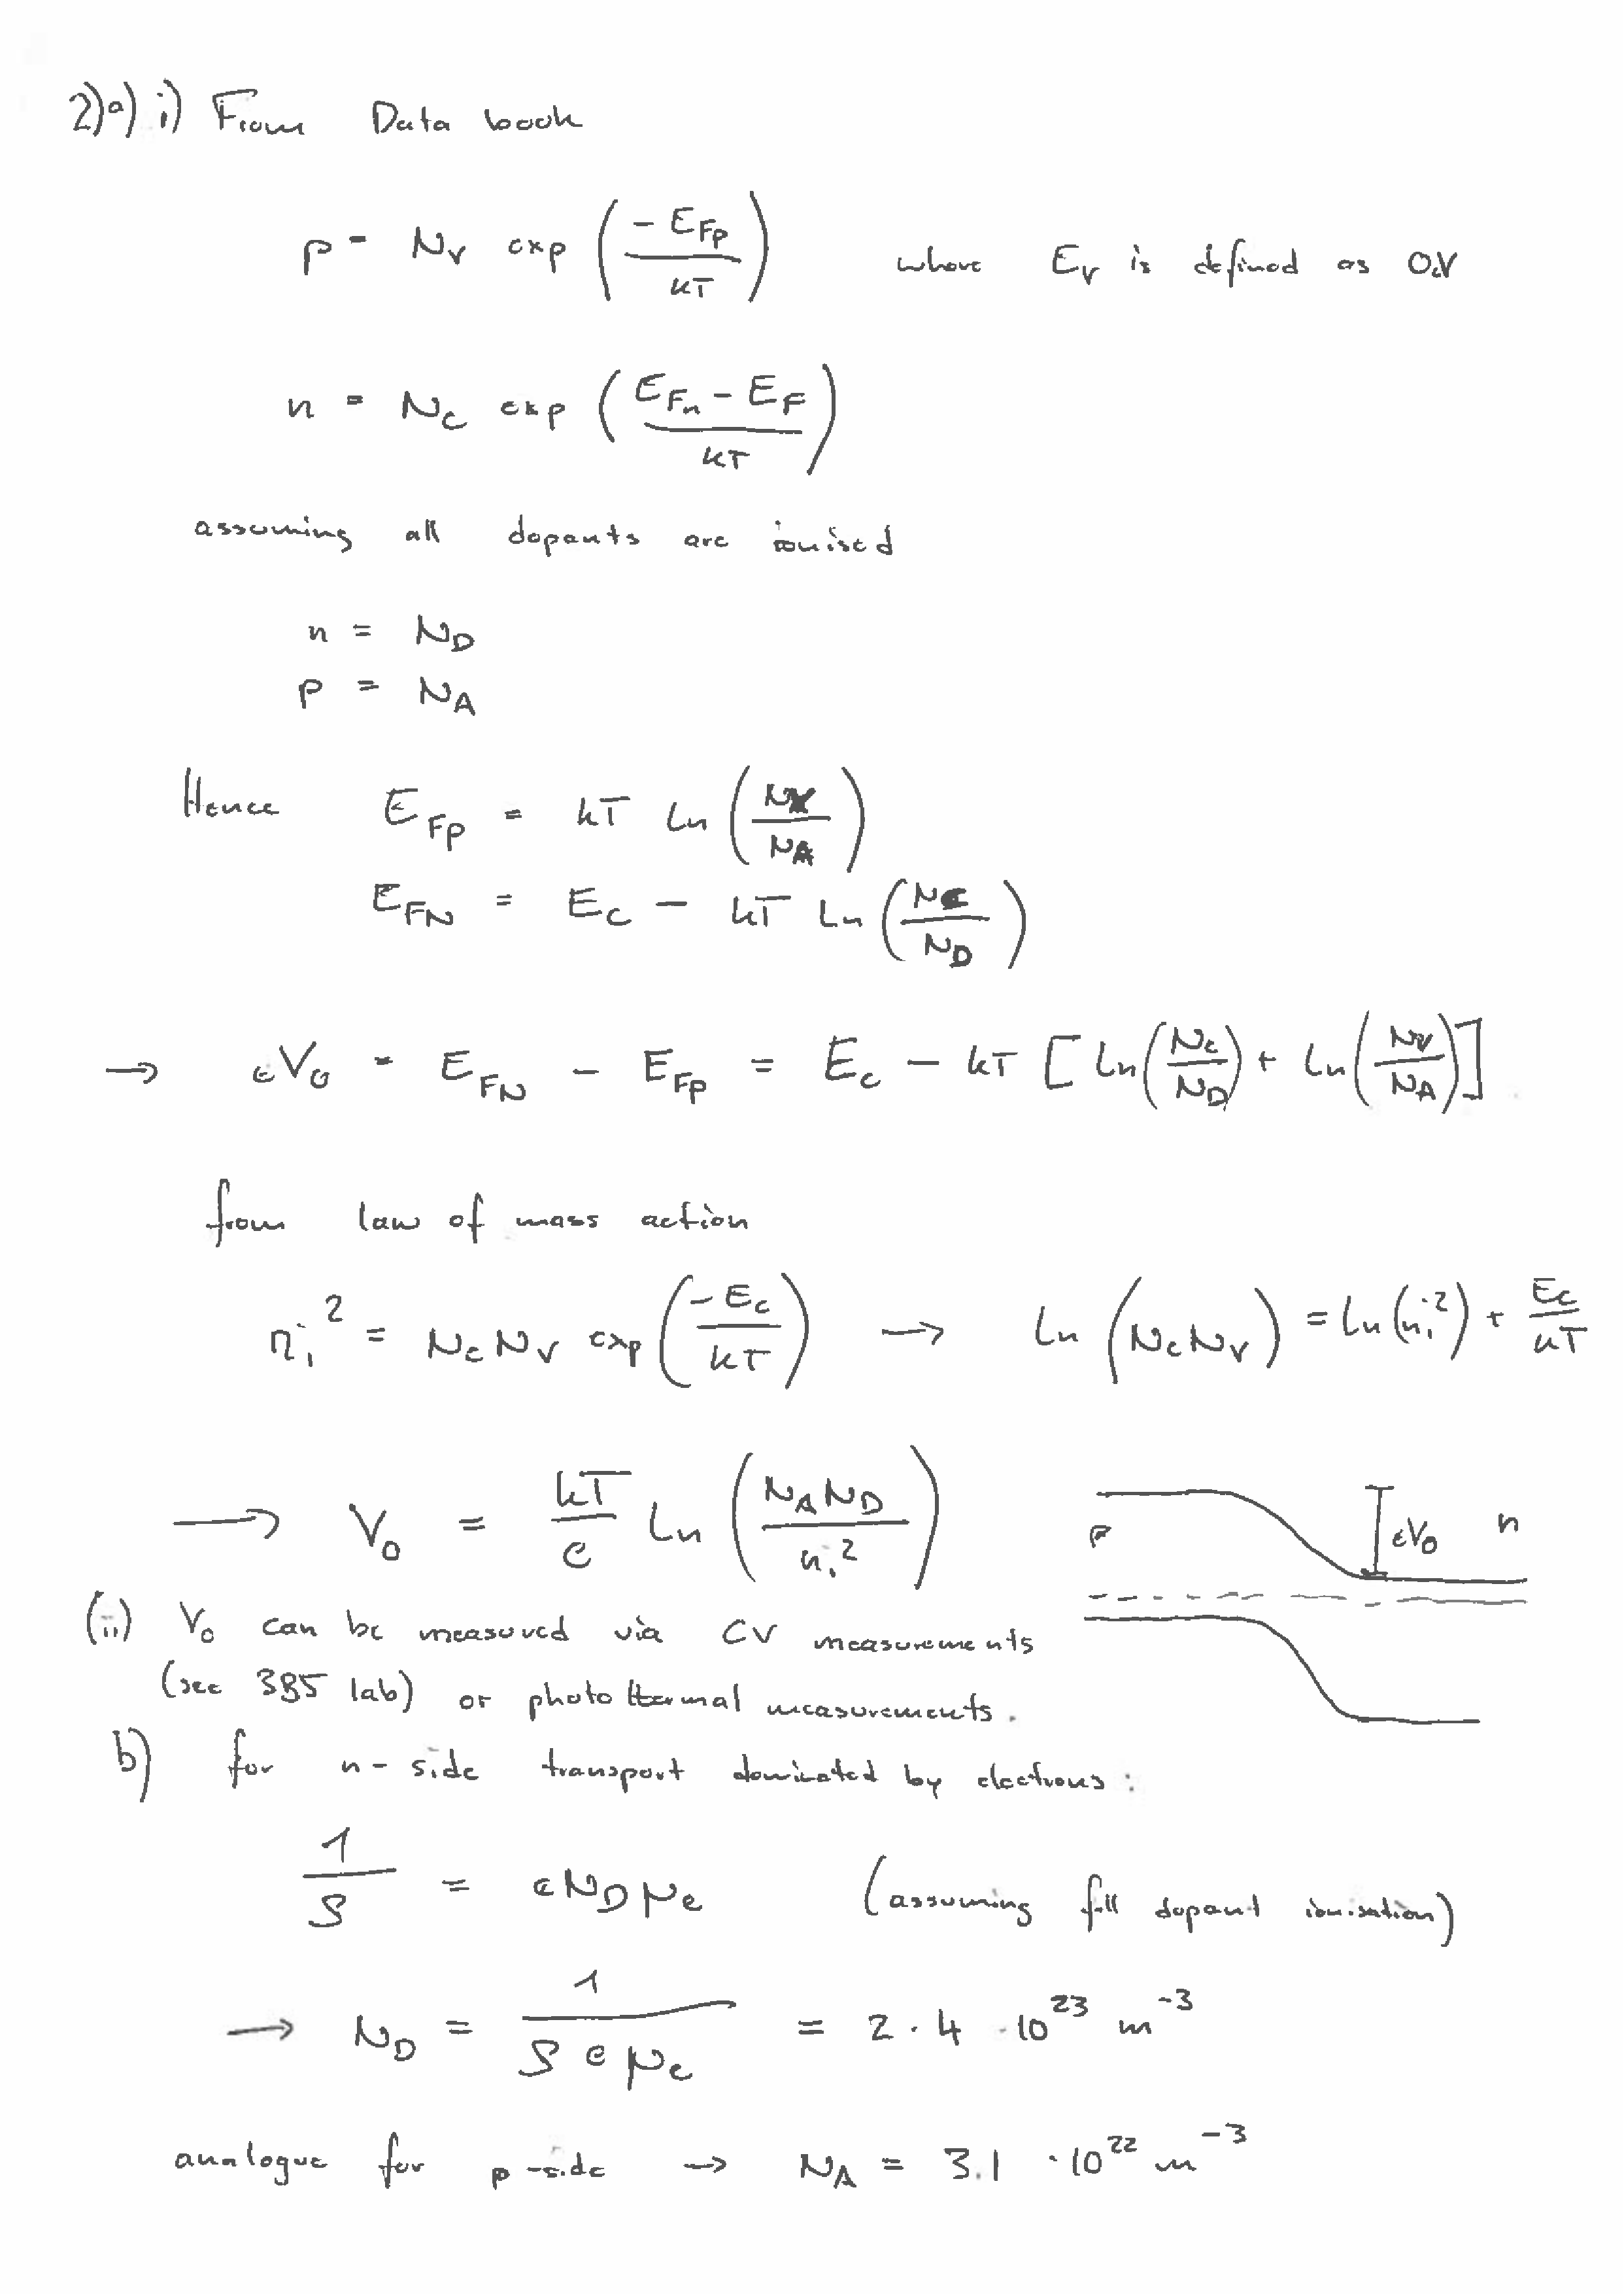 2) a) i) From Data book
p = N_V exp (-E_Fp / kT) where E_V is defined as 0eV
n = N_C exp ((E_Fn - E_F) / kT)
assuming all dopants are ionised
n = N_D
p = N_A
Hence E_Fp = kT ln (N_V / N_A)
E_FN = E_C - kT ln (N_C / N_D)
→ eV_0 = E_FN - E_Fp = E_C - kT [ln (N_C / N_D) + ln (N_V / N_A)]
from law of mass action
n_i^2 = N_C N_V exp (-E_C / kT) → ln (N_C N_V) = ln (n_i^2) + E_C / kT
→ V_0 = kT / e ln (N_A N_D / n_i^2)
p eV_0 n
(ii) V_0 can be measured via CV measurements
(see 3B5 lab) or photothermal measurements.
b) for n-side transport dominated by electrons:
1 / ρ = e N_D μ_e (assuming full dopant ionisation)
→ N_D = 1 / (ρ e μ_e) = 2·4 · 10^23 m^-3
analogue for p-side → N_A = 3.1 · 10^22 m^-3